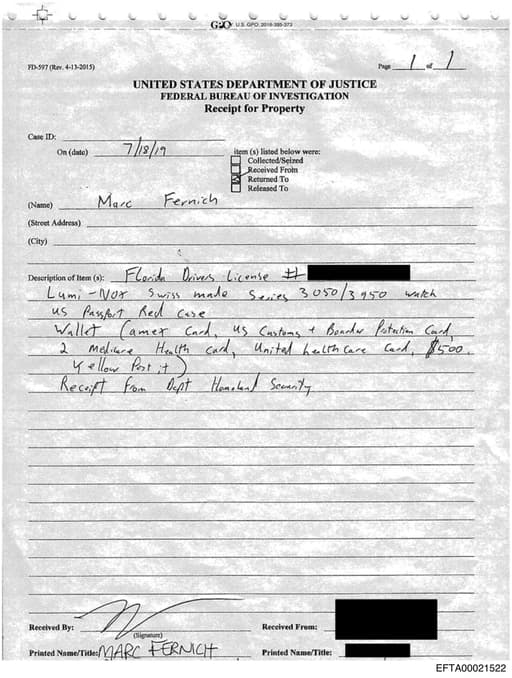 GPO U.S. GPO: 2016-395-373
FD-597 (Rev. 4-13-2015)
Page 1 of 1
UNITED STATES DEPARTMENT OF JUSTICE
FEDERAL BUREAU OF INVESTIGATION
Receipt for Property
Case ID:
On (date) 7/18/19
item (s) listed below were:
Collected/Seized
Received From
Returned To
Released To
(Name) Marc Fernich
(Street Address)
(City)
Description of Item (s): Florida Drivers License #
Lumi-NOX Swiss made Series 3050/3950 watch
US Passport Red Case
Wallet (amex card, US Customs + Boarder Protection Card,
2 Medicare Health card, United healthcare Card, $500.
Yellow Post it)
Receipt from Dept Homeland Security
Received By:
(Signature)
Received From:
Printed Name/Title: MARC FERNICH
Printed Name/Title:
EFTA00021522